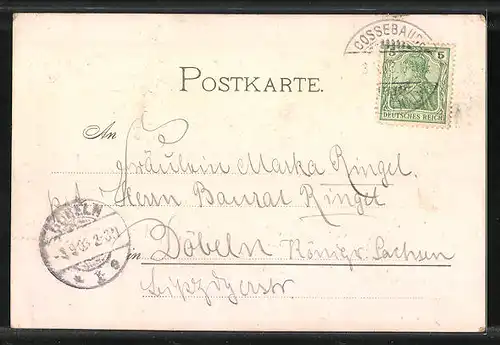 COSSEBAUDE
5 5
DEUTSCHES REICH
POSTKARTE.
An
Fräulein Marka Ringel.
Herrn Baurat Ringel
DÖBELN
in Döbeln Königr. Sachsen
Leipzigerstr